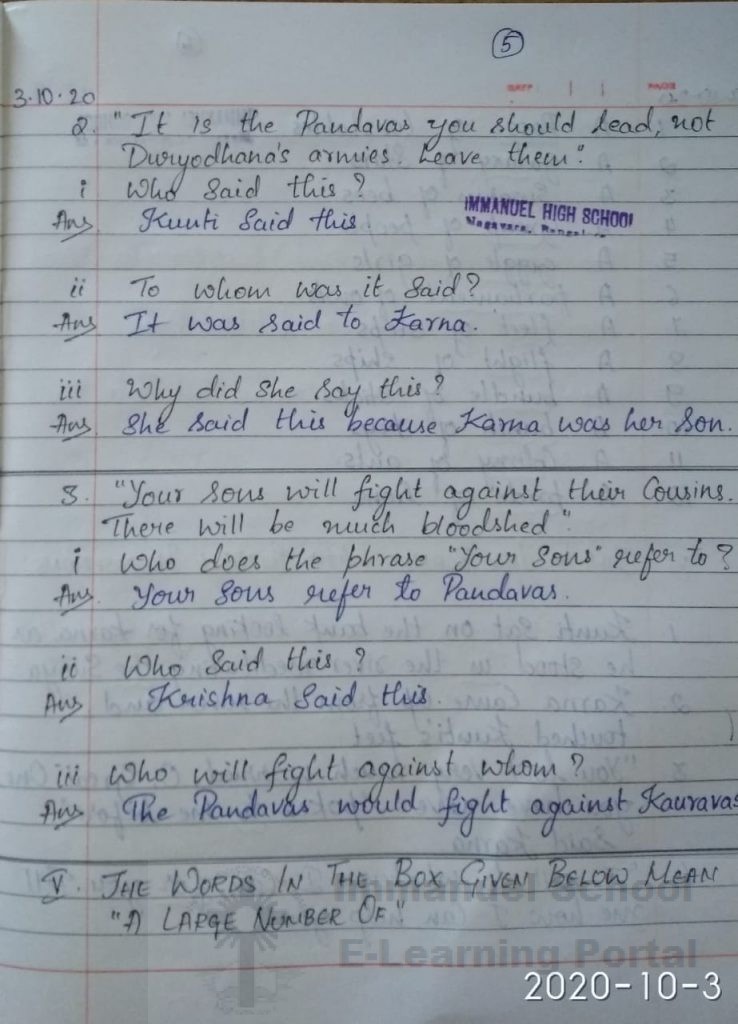 5
3.10.20
2. "It is the Pandavas you should lead, not
Duryodhana's armies. Leave them".
i Who said this?
Ans Kunti said this.
IMMANUEL HIGH SCHOOL
ii To whom was it said?
Ans It was said to Karna.
iii Why did she say this?
Ans She said this because Karna was her son.
3. "Your sons will fight against their Cousins.
There will be much bloodshed".
i Who does the phrase "Your sons" refer to?
Ans Your sons refer to Pandavas.
ii Who said this?
Ans Krishna said this.
iii Who will fight against whom?
Ans The Pandavas would fight against Kauravas
V. THE WORDS IN THE BOX GIVEN BELOW MEAN
"A LARGE NUMBER OF"
Immanuel School
E-Learning Portal
2020-10-3